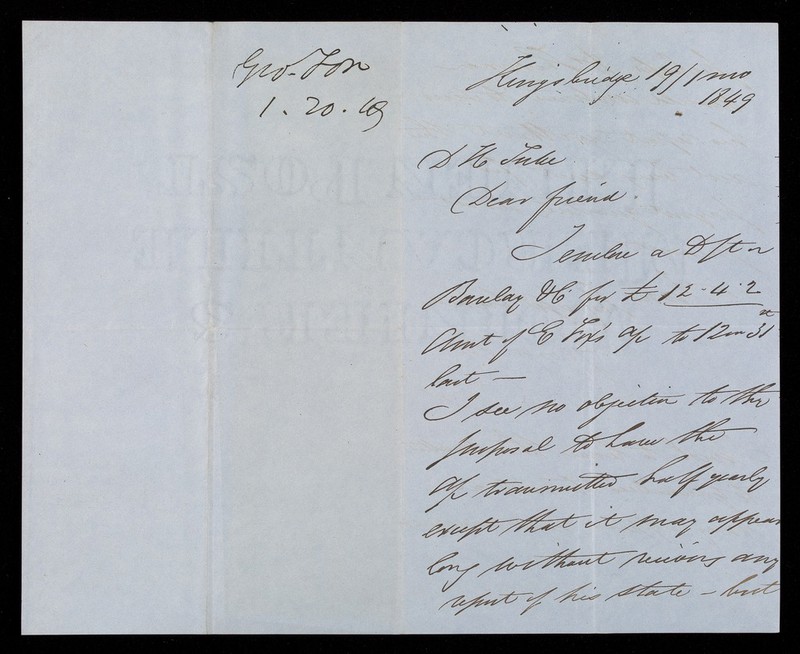 Geo. Fox
1. 20. 49
Kingsbridge 19/1 mo
1849
D H Tuke
Dear friend.
I enclose a Dft on
Barclay & Co for £ 12-4-2
Amt of E Fox's a/c to 12 mo 31st
last —
I see no objection to the
proposal to have the
a/c transmitted half yearly
except that it may appear
long without receiving any
report of his state - but